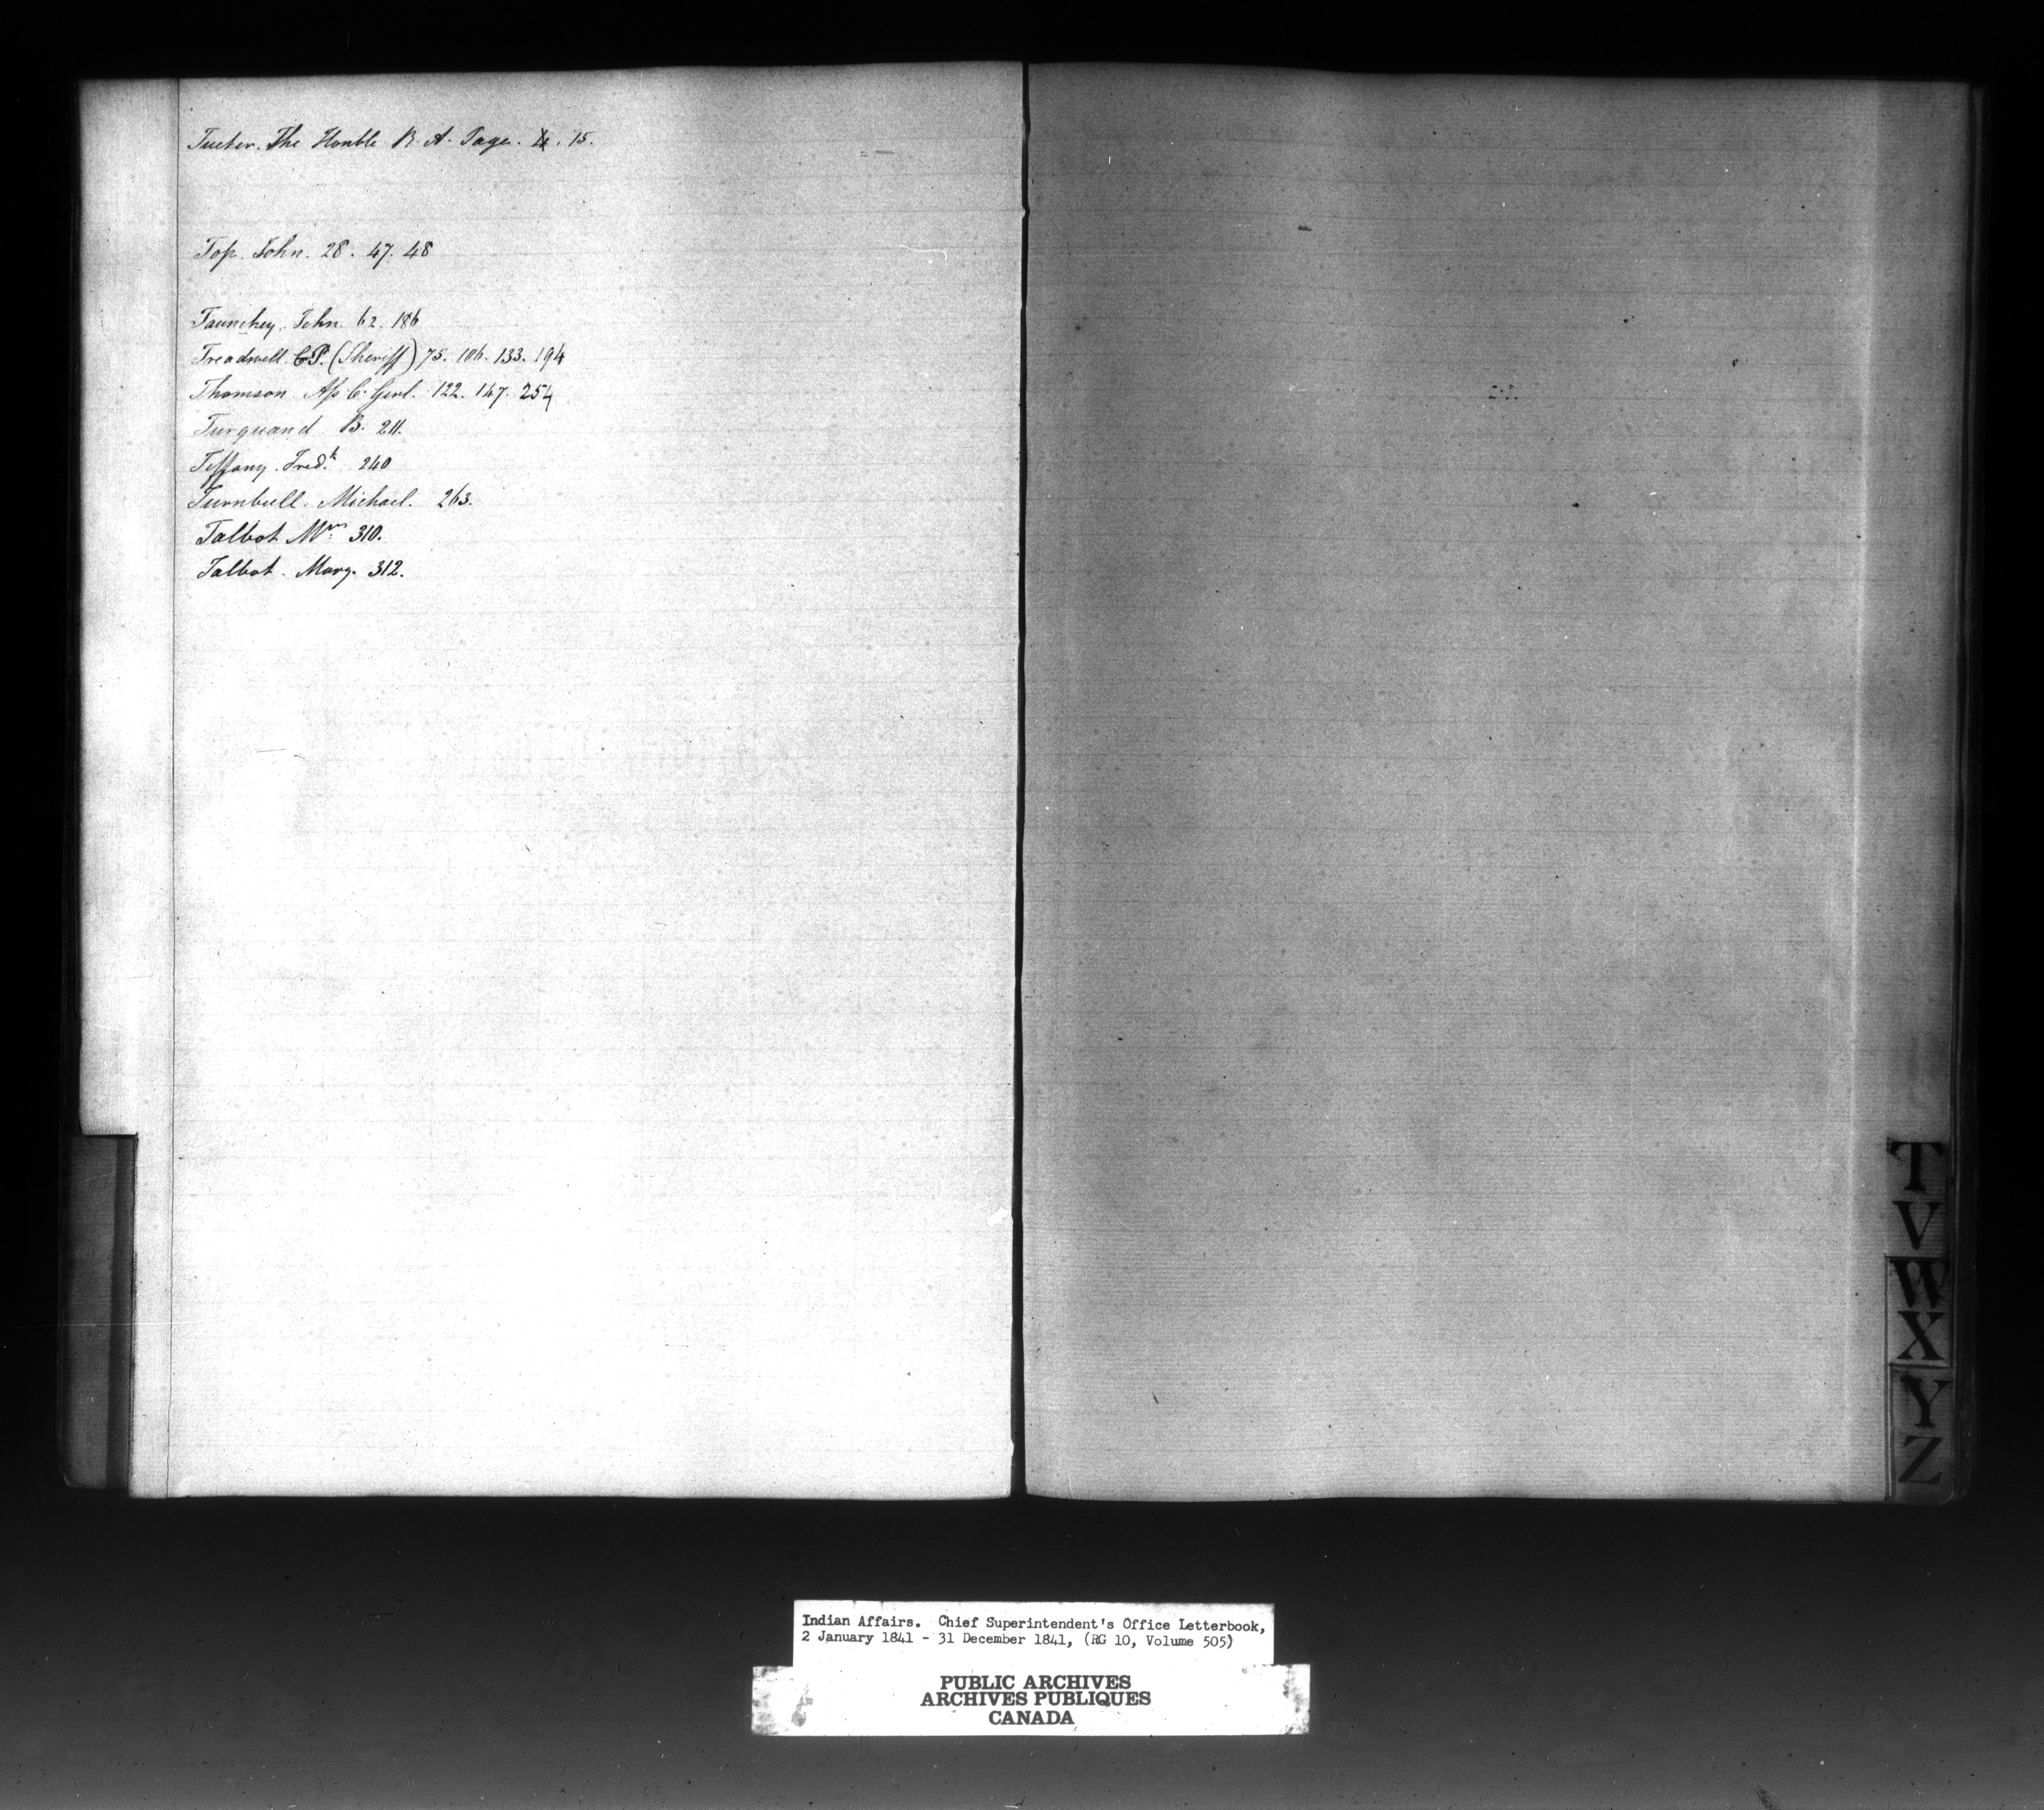 Tucker. The Honble R. A. Page. 15.
Top. John. 28. 47. 48
Taunchey. John. 62. 186
Treadwell. C.P. (Sheriff) 75. 106. 133. 194
Thomson. Ass. C. Genl. 122. 147. 254
Turquand B. 211.
Tiffany. Fredk. 240
Turnbull. Michael. 263.
Talbot Wm. 310.
Talbot. Mary. 312.
T
V
W
X
Y
Z
Indian Affairs. Chief Superintendent's Office Letterbook,
2 January 1841 - 31 December 1841, (RG 10, Volume 505)
PUBLIC ARCHIVES
ARCHIVES PUBLIQUES
CANADA